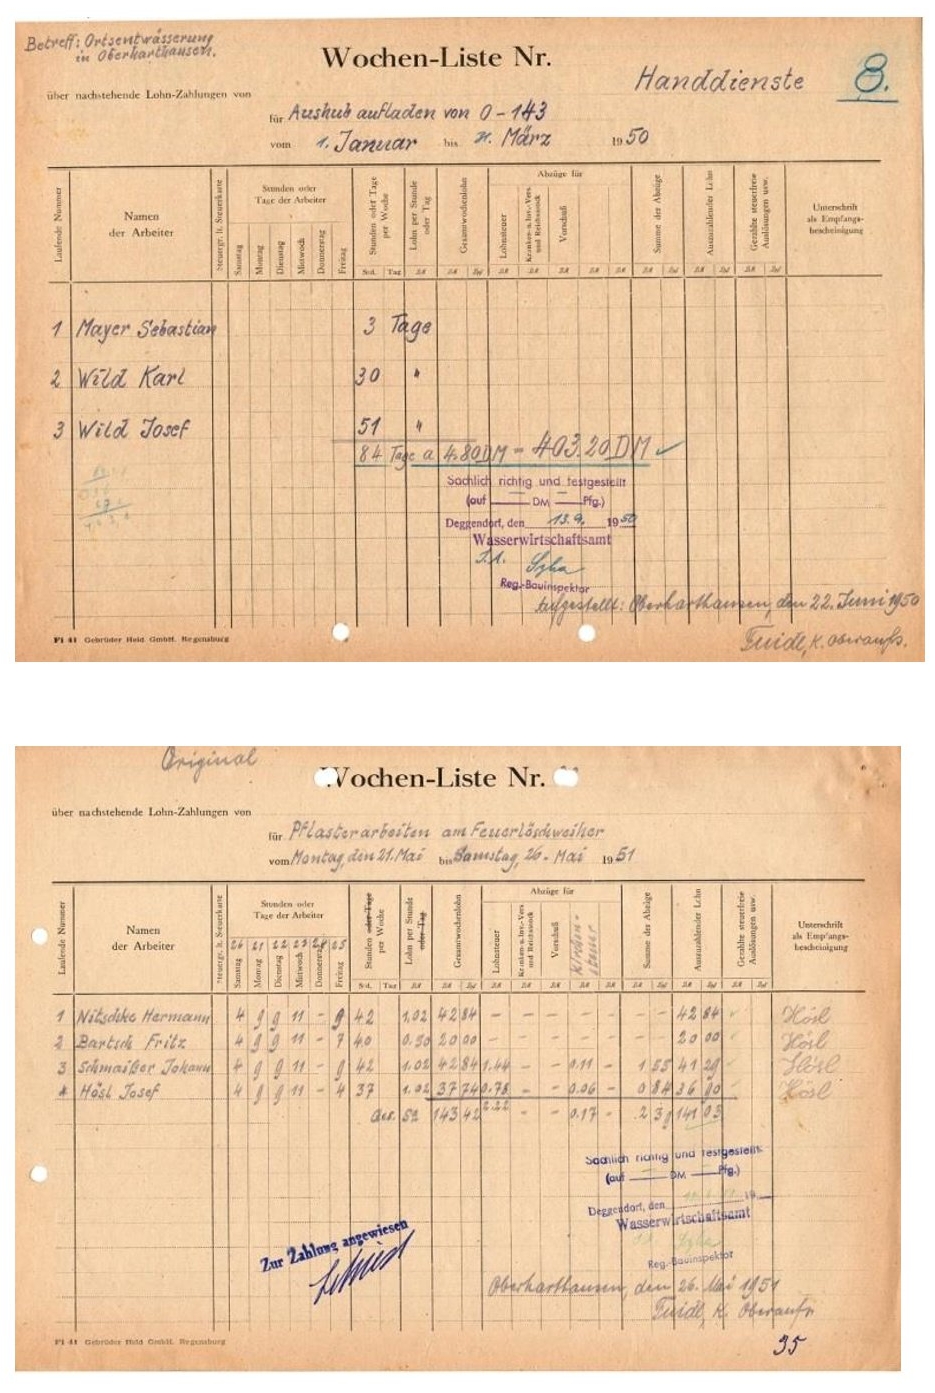 Betreff: Ortsentwässerung
in Oberharthausen.
Wochen-Liste Nr. 8.
Handdienste
über nachstehende Lohn-Zahlungen von
für Aushub aufladen von 0-143
vom 1. Januar bis 31. März 1950
Laufende Nummer
Namen der Arbeiter
Steuergr. lt. Steuerkarte
Stunden oder Tage der Arbeiter
Samstag Montag Dienstag Mittwoch Donnerstag Freitag
Stunden oder Tage per Woche
Lohn per Stunde oder Tag
Gesamtwochenlohn
Abzüge für
Lohnsteuer
Kranken- u. Inv.-Vers. und Reichsstock
Vorschuß
Summe der Abzüge
Auszuzahlender Lohn
Gezahlte steuerfreie Auslösungen usw.
Unterschrift als Empfangsbescheinigung
Std. Tag
1 Mayer Sebastian 3 Tage
2 Wild Karl 30 "
3 Wild Josef 51 "
84 Tage a 4.80 DM = 403.20 DM ✓
Sachlich richtig und festgestellt
(auf — DM — Pfg.)
Deggendorf, den 13.9. 1950
Wasserwirtschaftsamt
Reg.-Bauinspektor
Aufgestellt: Oberharthausen, den 22. Juni 1950
Fi 41 Gebrüder Held GmbH. Regensburg
Original
Wochen-Liste Nr.
über nachstehende Lohn-Zahlungen von
für Pflasterarbeiten am Feuerlöschweiher
vom Montag, den 21. Mai bis Samstag, 26. Mai 1951
Laufende Nummer
Namen der Arbeiter
Steuergr. lt. Steuerkarte
Stunden oder Tage der Arbeiter
26 21 22 23 24 25
Samstag Montag Dienstag Mittwoch Donnerstag Freitag
Stunden oder Tage per Woche
Lohn per Stunde oder Tag
Gesamtwochenlohn
Abzüge für
Lohnsteuer
Kranken- u. Inv.-Vers. und Reichsstock
Vorschuß
Kirchensteuer
Summe der Abzüge
Auszuzahlender Lohn
Gezahlte steuerfreie Auslösungen usw.
Unterschrift als Empfangsbescheinigung
Std. Tag
1 Nitschke Hermann 4 9 9 11 - 9 42 1.02 42 84 - - - - - - 42 84 Hösl
2 Bartsch Fritz 4 9 9 11 - 7 40 0.50 20 00 - - - - - - 20 00 Hösl
3 Schmaißer Johann 4 9 9 11 - 9 42 1.02 42 84 1.44 - - 0.11 - 1 55 41 29 Hösl
4 Hösl Josef 4 9 9 11 - 4 37 1.02 37 74 0.78 - - 0.06 - 0 84 36 90 Hösl
143 42 2.22 - - 0.17 - 2 39 141 03
Sachlich richtig und festgestellt
(auf — DM — Pfg.)
Deggendorf, den 19
Wasserwirtschaftsamt
Reg.-Bauinspektor
Zur Zahlung angewiesen
Oberharthausen, den 26. Mai 1951
Fi 41 Gebrüder Held GmbH. Regensburg
35